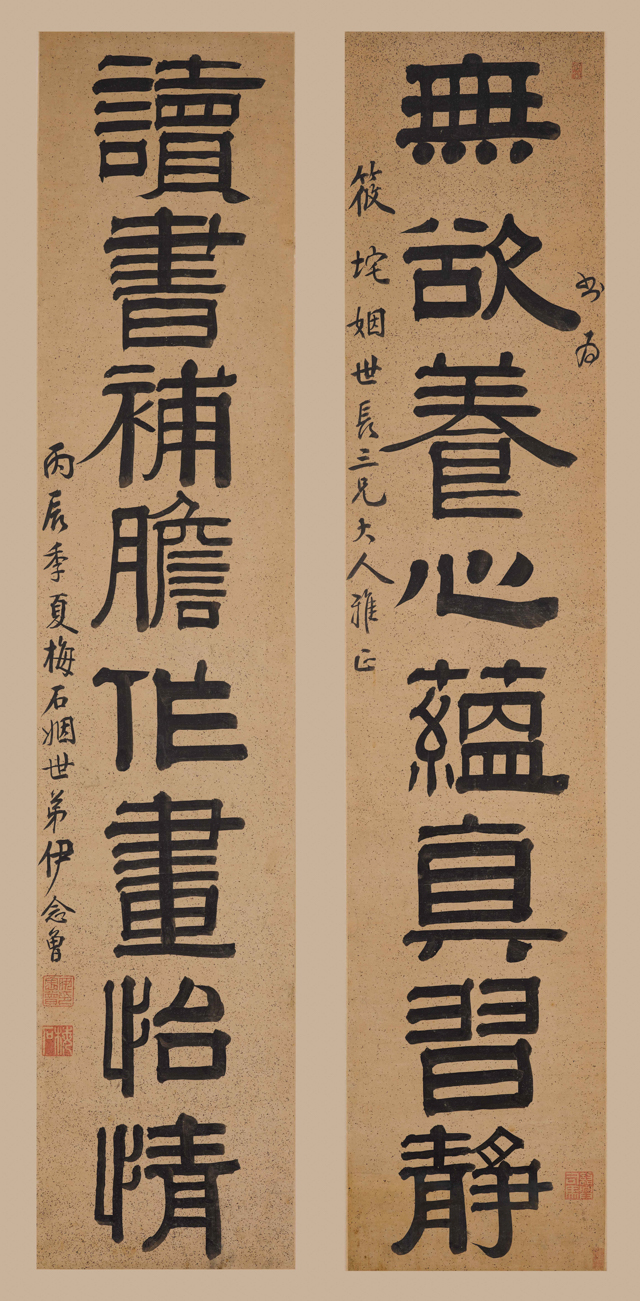 書為
無欲養心蘊真習靜
筱坨姻世長三兄大人雅正
讀書補膽作畫怡情
丙辰季夏梅石姻世弟伊念曾